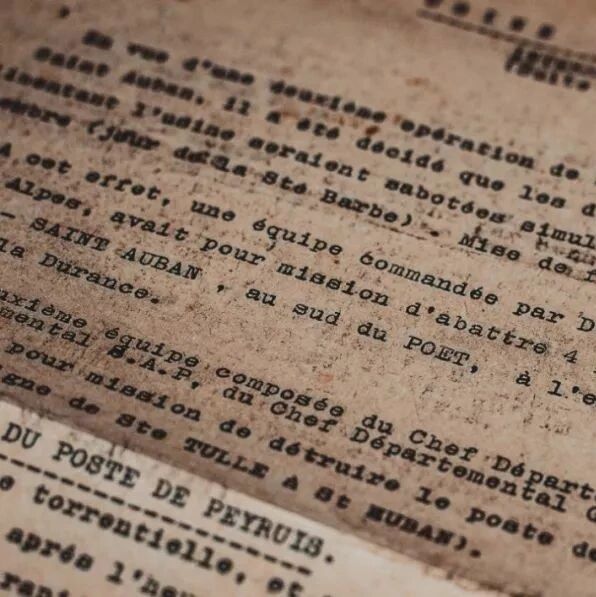 En vue d'une deuxième opération de
Saint Auban, il a été décidé que les d
imentant l'usine seraient sabotées simul
embre (jour de la Sté Barbe). Mise de f
A cet effet, une équipe commandée par D
Alpes, avait pour mission d'abattre 4
- SAINT AUBAN , au sud du POET, à l'e
la Durance.
uxième équipe composée du Chef Départe
mental S.A.P. du Chef Départemental
pour mission de détruire le poste de
igne de Ste TULLE A St AUBAN).
DU POSTE DE PEYRUIS.
e torrentielle, et
après l'heu
rapi